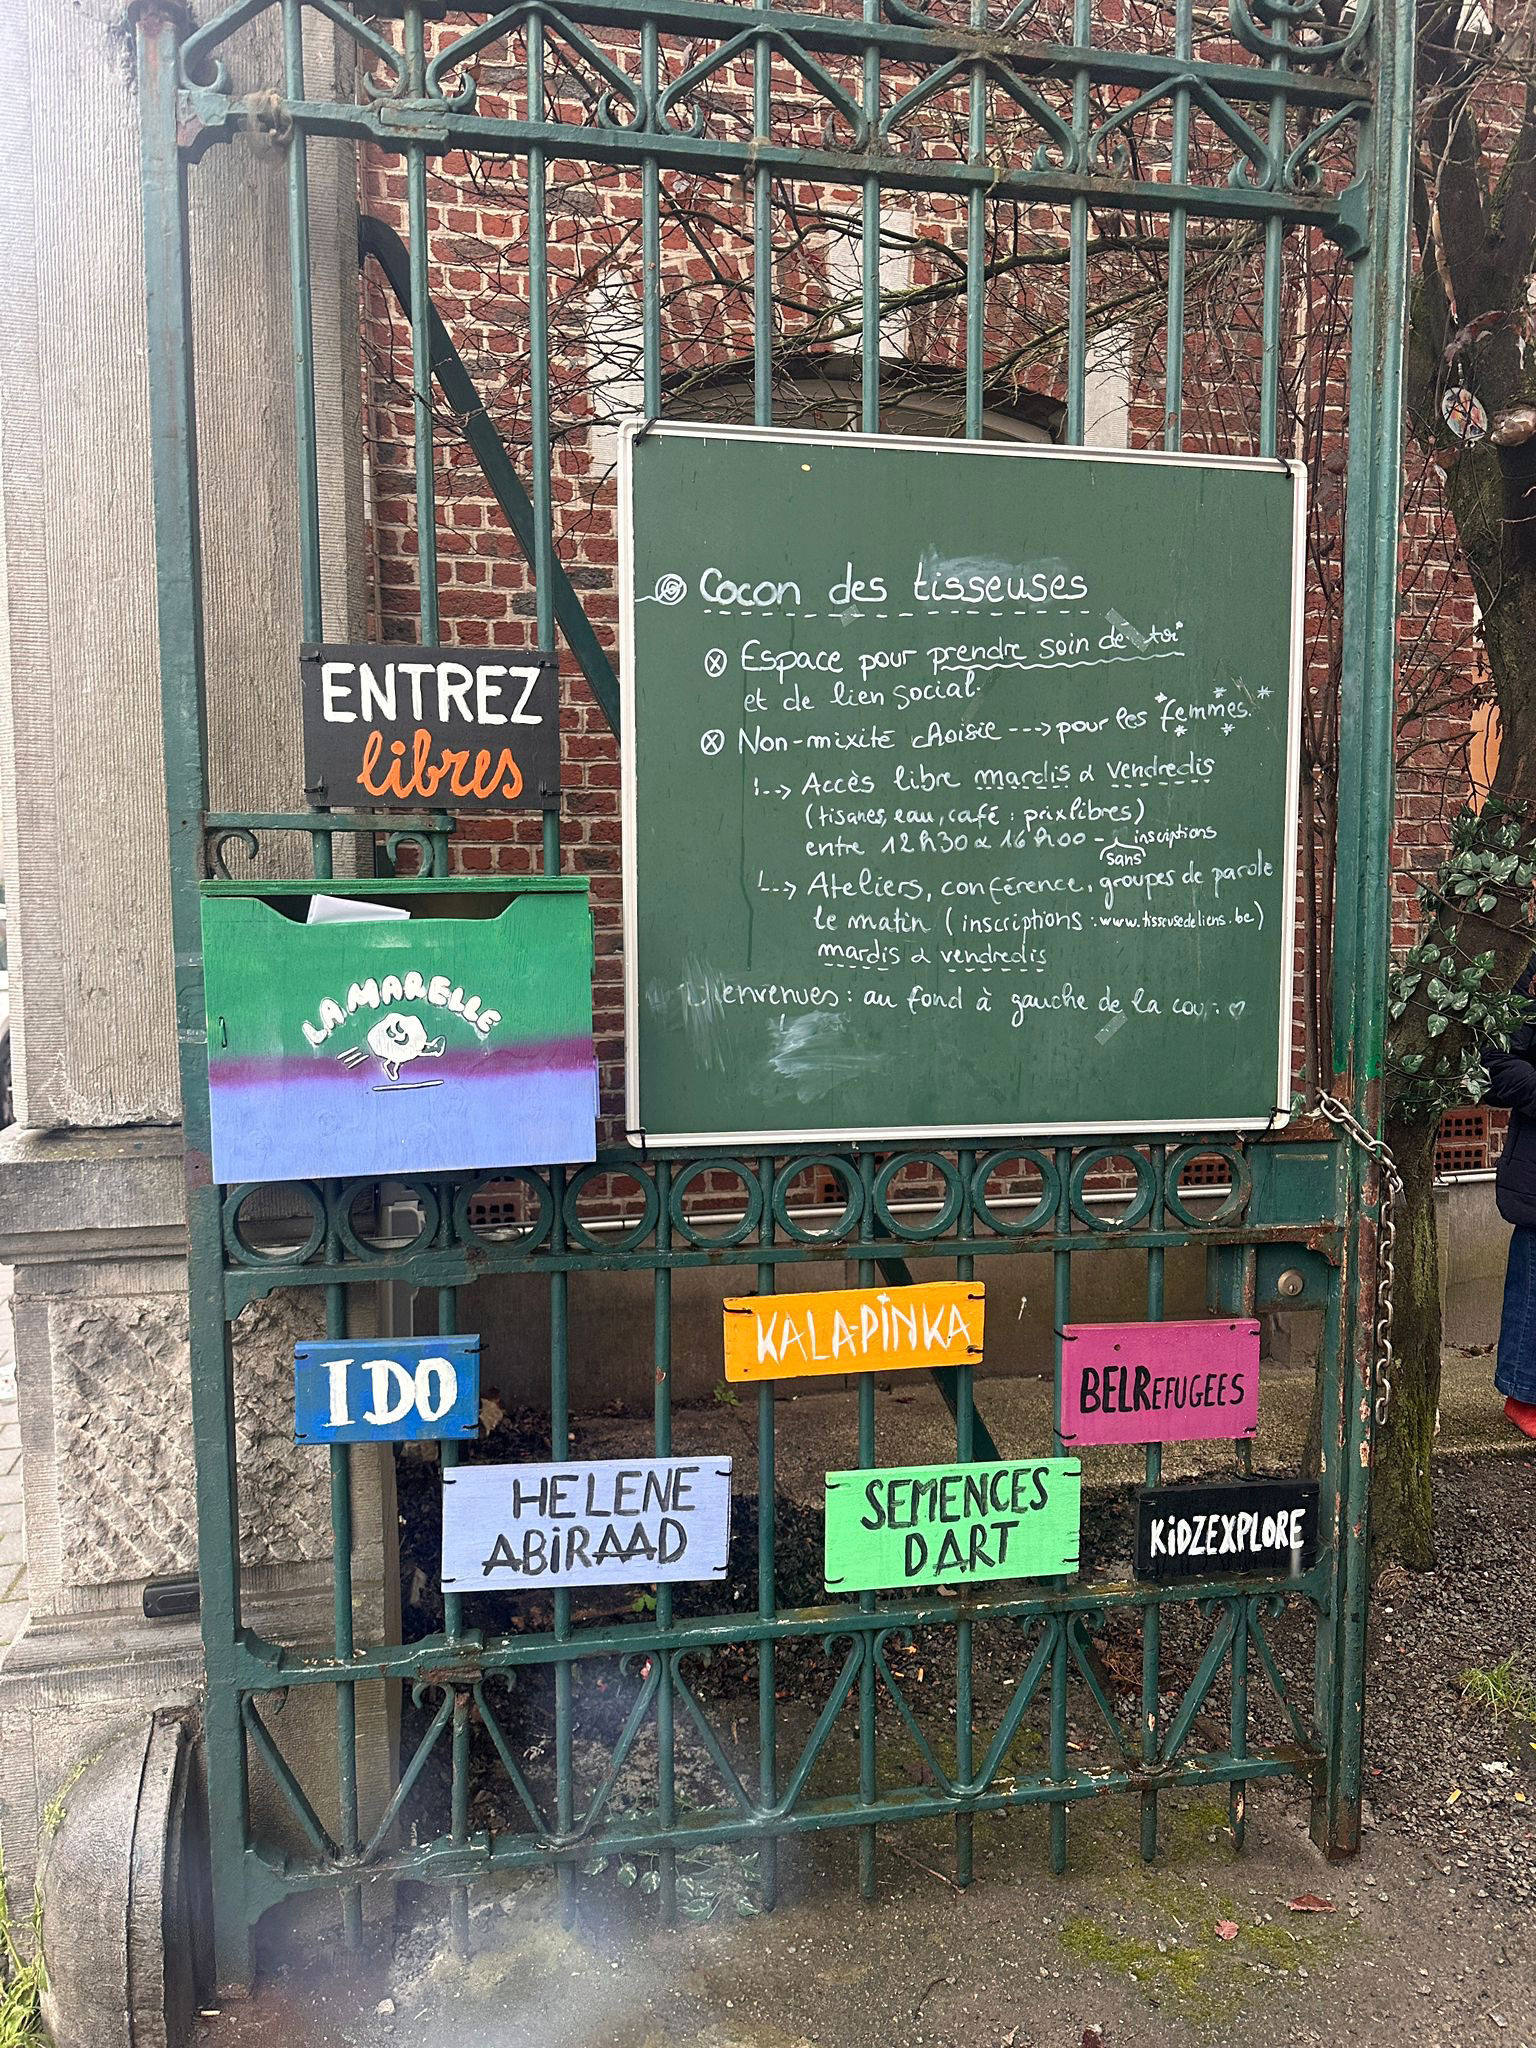 Cocon des tisseuses
Espace pour prendre soin de toi
et de lien social.
Non-mixité choisie ---> pour les *femmes.*
Accès libre mardis & vendredis
(tisanes, eau, café : prix libres)
entre 12h30 & 16h00 - sans inscriptions
Ateliers, conférence, groupes de parole
le matin (inscriptions : www.tisseusedeliens.be)
mardis & vendredis
envenues : au fond à gauche de la cour
ENTREZ
libres
LA MARELLE
KALA-PINKA
IDO
BELREFUGEES
HELENE
ABIRAAD
SEMENCES
DART
KiDZEXPLORE